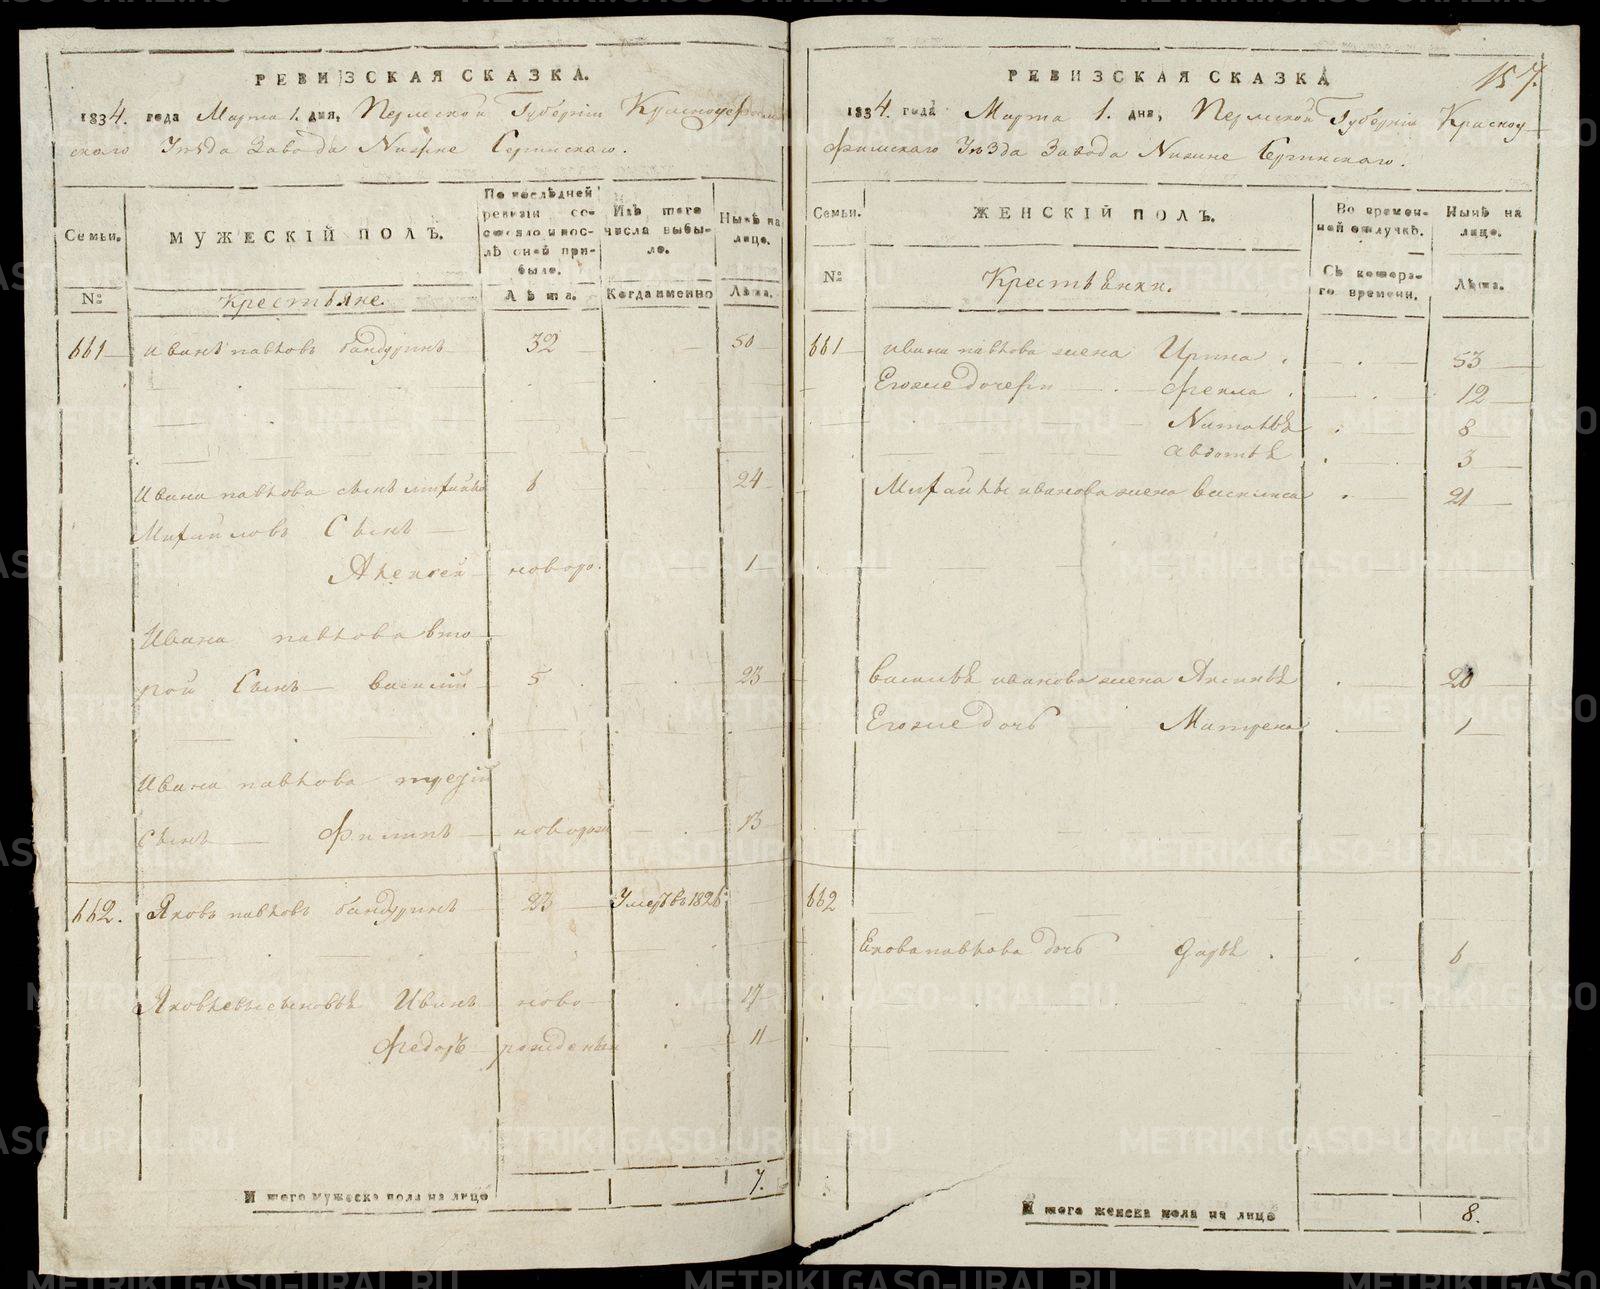 РЕВИЗСКАЯ СКАЗКА.
1834. года Марта 1. дня, Пермской Губернiи Красноуфим
скаго Уѣзда Завода Нижне Сергинскаго.
Семьи.
МУЖЕСКIЙ ПОЛЪ.
По послѣдней
ревизiи со-
стояло и пос-
лѣ оной при-
было.
Изъ того
числа выбы-
ло.
Нынѣ на
лицо.
№
Крестьяне.
Лѣта.
Когда именно
Лѣта.
661 Иванъ павловъ бандуринъ 32 50
Ивана павлова сынъ михайло 6 24
Михайловъ Сынъ
Алексей новоро. 1
Ивана павлова вто
рой Сынъ василiй 5 23
Ивана павлова третiй
сынъ Филипъ новорож 13
662. Яковъ павловъ бандуринъ 23 Умеръ въ 1826
Яковлевы сыновья Иванъ ново 17
Федоръ рожденны 11
Итого мужеска пола на лицо 7.
РЕВИЗСКАЯ СКАЗКА
157.
1834. года Марта 1. дня, Пермской Губернiи Красноу
фимскаго Уѣзда Завода Нижне Сергинскаго.
Семьи.
ЖЕНСКIЙ ПОЛЪ.
Во времен-
ной отлучкѣ.
Нынѣ на
лицо.
№
Крестьянки.
Съ котора-
го времени.
Лѣта.
661 Ивана павлова жена Ирина. 53
Егоже дочери фекла. 12
Наталья 8
Авдотья 3
Михайлы иванова жена василиса 21
Василья иванова жена Аксинья 20
Егоже дочь Матрена 1
662
Якова павлова дочь Дарья. 6
Итого женска пола на лицо 8.
METRIKI.GASO-URAL.RU